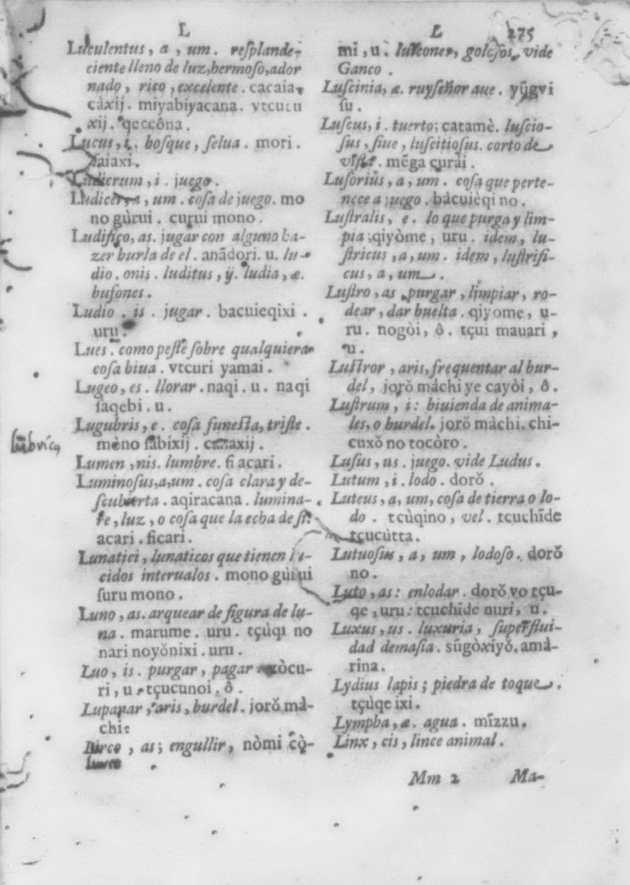 L
Luculentus, a, um. resplande-
ciente lleno de luz, hermoso, ador
nado, rico, excelente. cacaia.
càxij. miyabiyacana. vtcucu
xij. qeccôna.
Lucus, i. bosque, selua. mori.
saiaxi.
Ludicrum, i. juego.
um. cosa de juego. mo
no gùrui. curui mono.
Ludifico, as. jugar con alguno ha-
zer burla de el. anãdori. u. lu-
dio. onis. luditus, ÿ. ludia, æ.
bufones.
Ludio. is. jugar. bacuieqixi.
uru.
Lues. como peste sobre qualquiera
cosa biua. vtcuri yamai.
Lugeo, es. llorar. naqi. u. naqi
saqebi. u.
Lugubris, e. cosa funesta, triste.
mèno sabixij. canaxij.
lũbrica
Lumen, nis. lumbre. fi acari.
Luminosus, a, um. cosa clara y de-
scubierta. aqiracana. lumina-
re, luz, o cosa que la echa de si:
acari. ficari.
Lunatici, lunaticos que tienen lu-
cidos interualos. mono gùrui
suru mono.
Luno, as. arquear de figura de lu-
na. marume. uru. tçùqi no
nari noyǒnixi. uru.
Luo, is. purgar, pagar tòcu-
ri, u. tçucunoi. ô.
Lupanar, aris, burdel. jorǒ mâ-
chi:
Lurco, as; engullir, nòmi cô-
lurco
L 275
mi, u. lurcones, golosos, vide
Ganco.
Luscinia, æ. ruyseñor aue. yũgvi
su.
Luscus, i. tuerto; catamè. luscio-
sus, siue, luscitiosus. corto de
vista. mẽga curâi.
Lusorius, a, um. cosa que perte-
nece a juego. bàcuieqi no.
Lustralis, e. lo que purga y lim-
pia; qiyòme, uru. idem, lu-
stricus, a, um. idem, lustrifi-
cus, a, um.
Lustro, as purgar, limpiar, ro-
dear, dar buelta. qiyome, u-
ru. nogòi, ô. tçui mauari,
u.
Lustror, aris, frequentar al bur-
del, jorǒ màchi ye cayòi, ô.
Lustrum, i: biuienda de anima-
les, o burdel. jorǒ màchi. chi-
cuxǒ no tocòro.
Lusus, us. juego. vide Ludus.
Lutum, i. lodo. dorǒ.
Luteus, a, um, cosa de tierra o lo-
do. tcùqino, vel. tcuchĩde
tçucùtta.
Lutuosus, a, um, lodoso. dorǒ
no.
Luto, as: enlodar. dorǒ vo tçu-
qe, uru: tcuchĩde nuri, u.
Luxus, us. luxuria, superflui-
dad demasia. sũgòxiyǒ. amâ-
rina.
Lydius lapis; piedra de toque.
tçùqe ixi.
Lympha, æ. agua. mĩzzu.
Linx, cis, lince animal.
Mm 2 Ma-